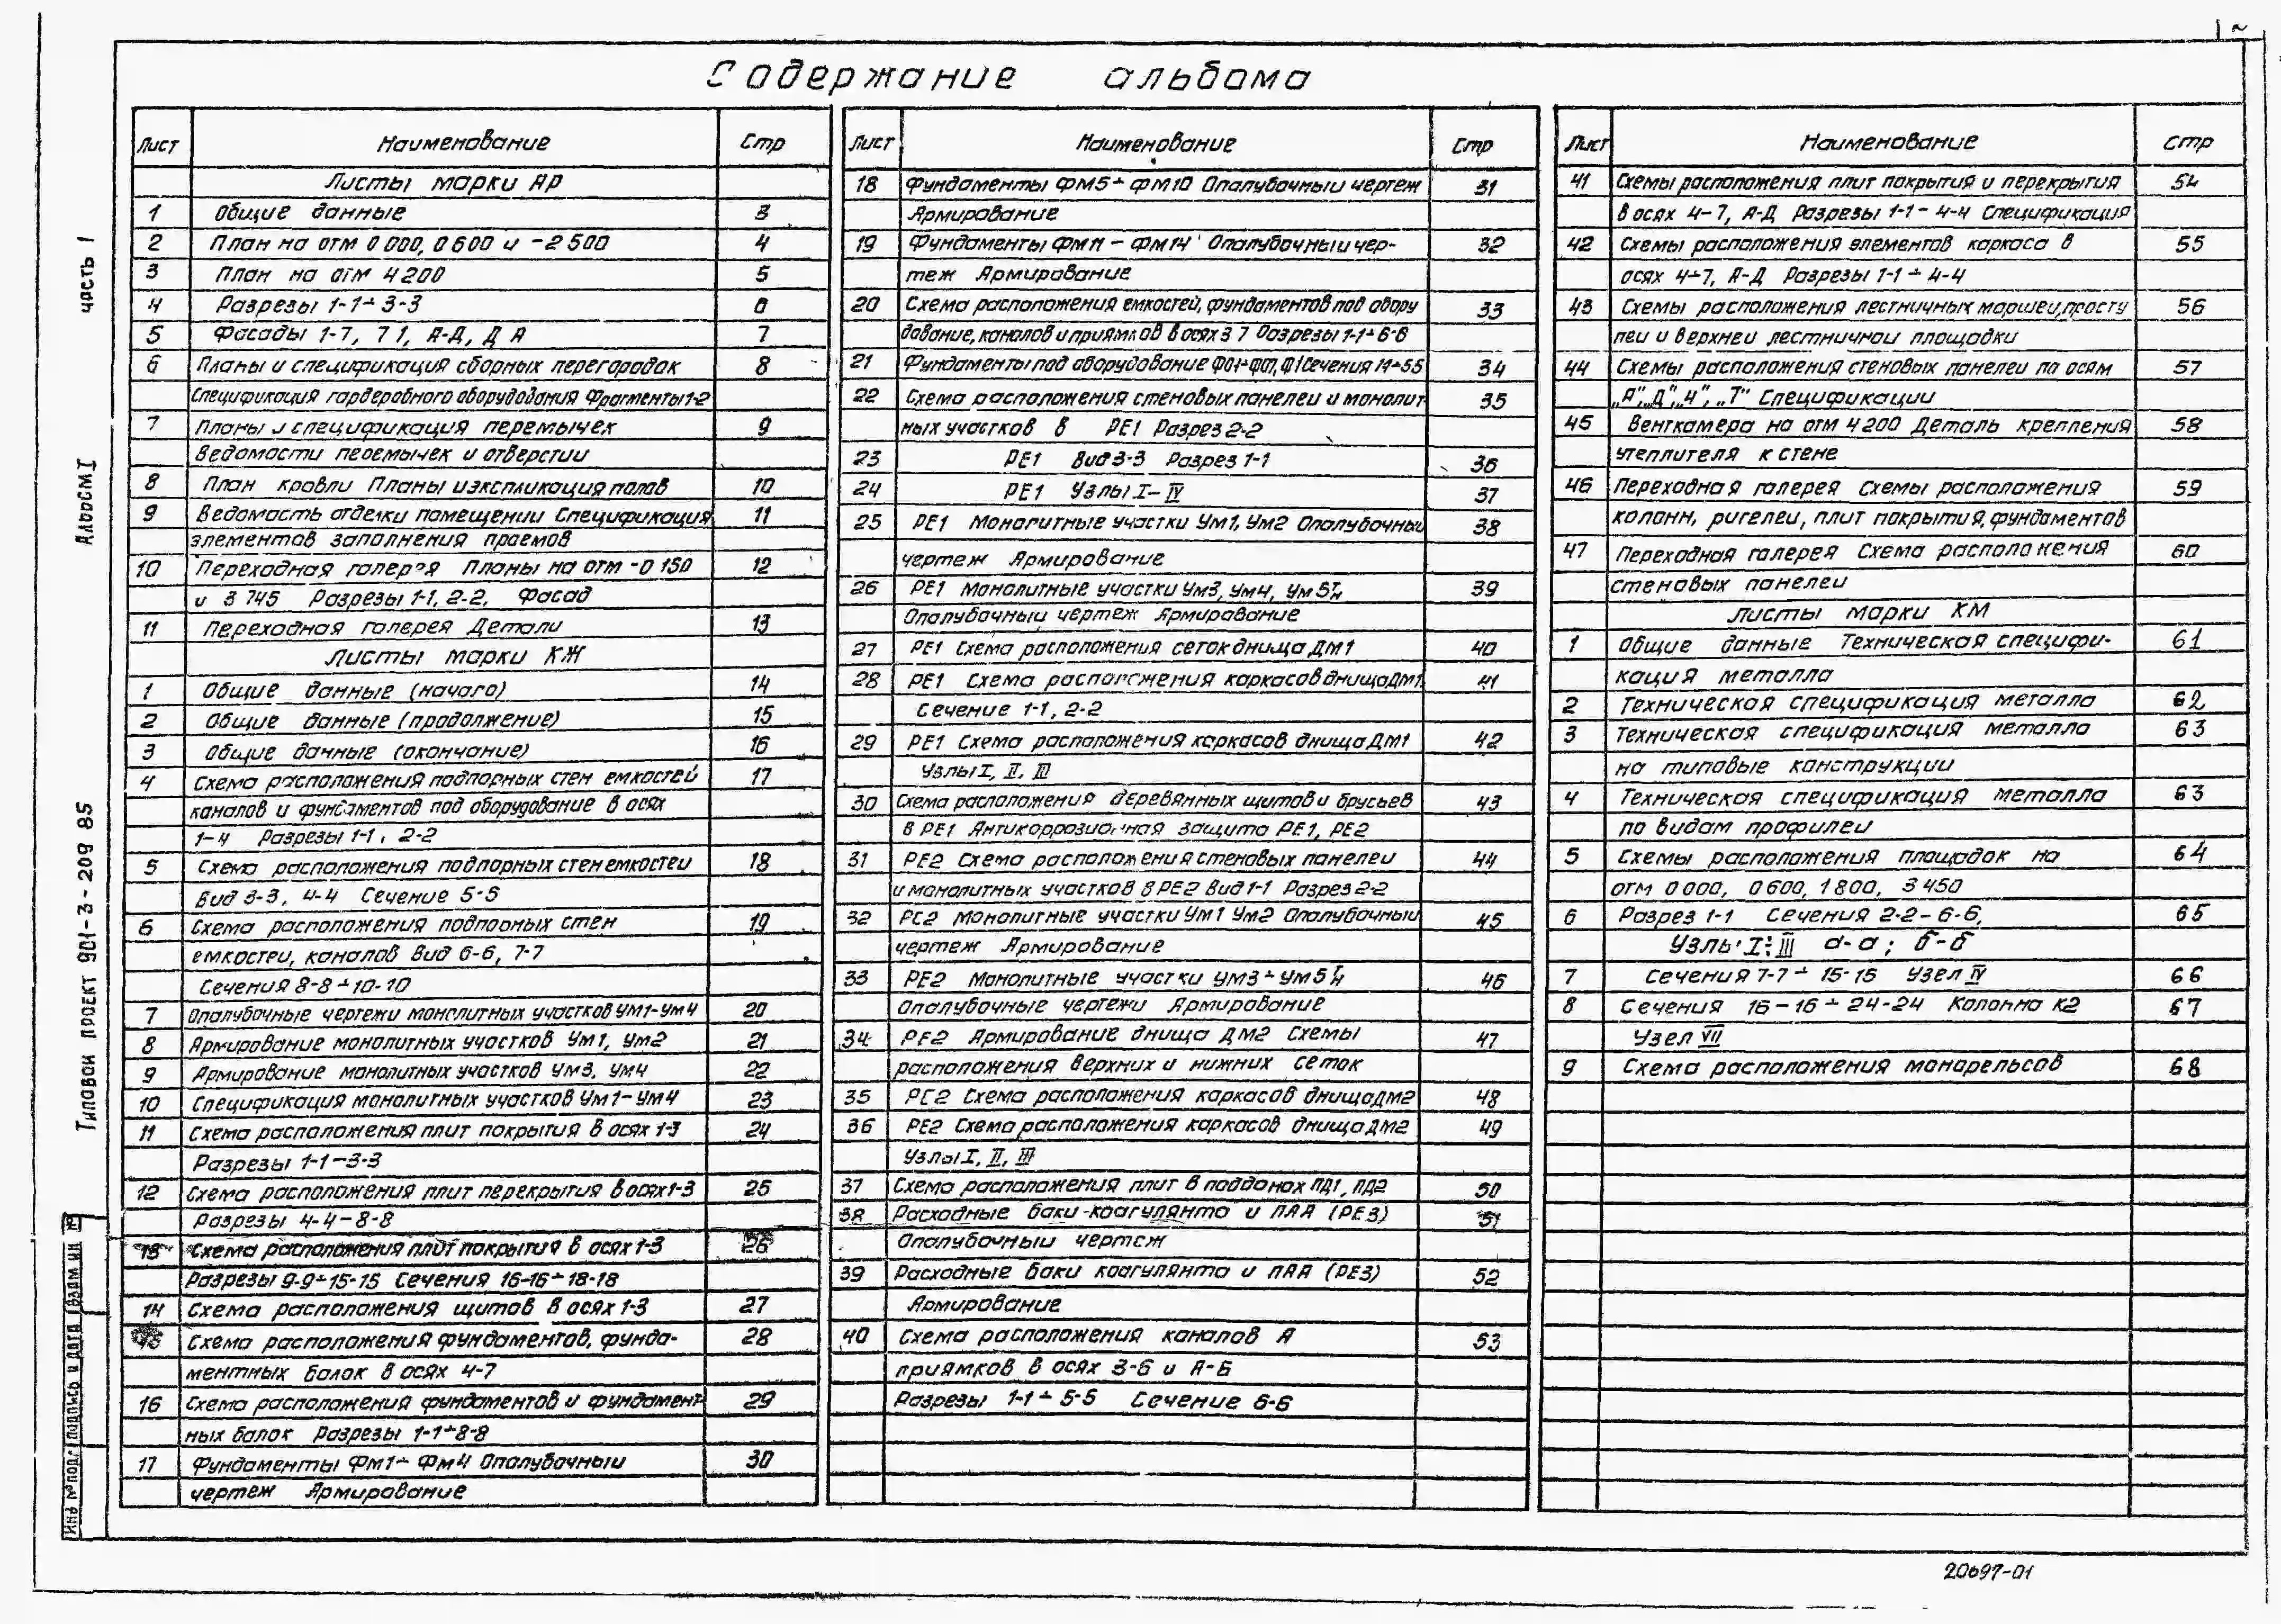 Содержание альбома
Лист Наименование Стр
Листы марки АР
1 Общие данные 3
2 План на отм 0 000, 0 600 и -2 500 4
3 План на отм 4 200 5
4 Разрезы 1-1÷3-3 6
5 Фасады 1-7, 7 1, А-Д, Д А 7
6 Планы и спецификация сборных перегородок 8
Спецификация гардеробного оборудования Фрагменты 1-2
7 Планы и спецификация перемычек 9
Ведомасти перемычек и отверстии
8 План кровли Планы и экспликация полов 10
9 Ведомость отделки помещении Спецификация 11
элементов заполнения проемов
10 Переходная галерея Планы на отм -0 150 12
и 3 745 Разрезы 1-1, 2-2, Фасад
11 Переходная галерея Детали 13
Листы марки КЖ
1 Общие данные (начало) 14
2 Общие данные (продолжение) 15
3 Общие данные (окончание) 16
4 Схема расположения подпорных стен емкостей 17
каналов и фундаментов под оборудование в осях
1-4 Разрезы 1-1, 2-2
5 Схема расположения подпорных стен емкостеи 18
Вид 3-3, 4-4 Сечение 5-5
6 Схема расположения подпорных стен 19
емкостеи, каналов Вид 6-6, 7-7
Сечения 8-8÷10-10
7 Опалубочные чертежи монолитных участков Ум1-Ум4 20
8 Армирование монолитных участков Ум1, Ум2 21
9 Армирование монолитных участков Ум3, Ум4 22
10 Спецификация монолитных участков Ум1-Ум4 23
11 Схема расположения плит покрытия в осях 1-3 24
Разрезы 1-1-3-3
12 Схема расположения плит перекрытия в осях 1-3 25
Разрезы 4-4-8-8
13 Схема расположения плит покрытия в осях 1-3 26
Разрезы 9-9÷15-15 Сечения 16-16÷18-18
14 Схема расположения щитов в осях 1-3 27
Схема расположения фундаментов, фунда- 28
ментных балок в осях 4-7
16 Схема расположения фундаментов и фундамент 29
ных балок Разрезы 1-1÷8-8
17 Фундаменты Фм1÷Фм4 Опалубочныи 30
чертеж Армирование
Лист Наименование Стр
18 Фундаменты ФМ5÷ФМ10 Опалубочныи чертеж 31
Армирование
19 Фундаменты ФМ11-ФМ14 Опалубочныи чер- 32
теж Армирование
20 Схема расположения емкостей, фундаментов под обору 33
дование, каналов и приямков в осях 3 7 Разрезы 1-1÷6-6
21 Фундаменты под оборудование 34
22 Схема расположения стеновых панелеи и монолит 35
ных участков в РЕ1 Разрез 2-2
23 РЕ1 Вид 3-3 Разрез 1-1 36
24 РЕ1 Узлы I-IV 37
25 РЕ1 Монолитные участки Ум1, Ум2 Опалубочныи 38
чертеж Армирование
26 РЕ1 Монолитные участки Ум3, Ум4, Ум5т,н 39
Опалубочныи чертеж Армирование
27 РЕ1 Схема расположения сеток днища ДМ1 40
28 РЕ1 Схема расположения каркасов днища ДМ1 41
Сечение 1-1, 2-2
29 РЕ1 Схема расположения каркасов днища ДМ1 42
Узлы I, II, III
30 Схема расположения деревянных щитов и брусьев 43
в РЕ1 Антикоррозионная защита РЕ1, РЕ2
31 РЕ2 Схема расположения стеновых панелеи 44
и монолитных участков в РЕ2 Вид 1-1 Разрез 2-2
32 РЕ2 Монолитные участки Ум1 Ум2 Опалубочныи 45
чертеж Армирование
33 РЕ2 Монолитные участки Ум3÷Ум5т,н 46
Опалубочные чертежи Армирование
34 РЕ2 Армирование днища ДМ2 Схемы 47
расположения верхних и нижних сеток
35 РЕ2 Схема расположения каркасов днища ДМ2 48
36 РЕ2 Схема расположения каркасов днища ДМ2 49
Узлы I, II, III
37 Схема расположения плит в поддонах ПД1, ПД2 50
38 Расходные баки коагулянта и ПАА (РЕ3) 51
Опалубочныи чертеж
39 Расходные баки коагулянта и ПАА (РЕ3) 52
Армирование
40 Схема расположения каналов А 53
приямков в осях 3-6 и А-Б
Разрезы 1-1÷5-5 Сечение 6-6
Лист Наименование Стр
41 Схемы расположения плит покрытия и перекрытия 54
в осях 4-7, А-Д Разрезы 1-1-4-4 Спецификация
42 Схемы расположения элементов каркаса в 55
осях 4÷7, А-Д Разрезы 1-1÷4-4
43 Схемы расположения лестничных маршеи, просту 56
пеи и верхнеи лестничнои площадки
44 Схемы расположения стеновых панелеи по осям 57
„А", „Д", „4", „7" Спецификации
45 Венткамера на отм 4 200 Деталь крепления 58
утеплителя к стене
46 Переходная галерея Схемы расположения 59
колонн, ригелеи, плит покрытия, фундаментов
47 Переходная галерея Схема расположения 60
стеновых панелеи
Листы марки КМ
1 Общие данные Техническая специфи- 61
кация металла
2 Техническая спецификация металла 62
3 Техническая спецификация металла 63
на типовые конструкции
4 Техническая спецификация металла 63
по видам профилеи
5 Схемы расположения площадок на 64
отм 0 000, 0 600, 1 800, 3 450
6 Разрез 1-1 Сечения 2-2-6-6, 65
Узлы I÷III а-а; б-б
7 Сечения 7-7÷15-15 Узел IV 66
8 Сечения 16-16÷24-24 Колонна К2 67
Узел VII
9 Схема расположения монорельсов 68
Типовой проект 901-3-209 85 Альбом I часть 1
Инв № подл Подпись и дата Взам ин №
20697-01